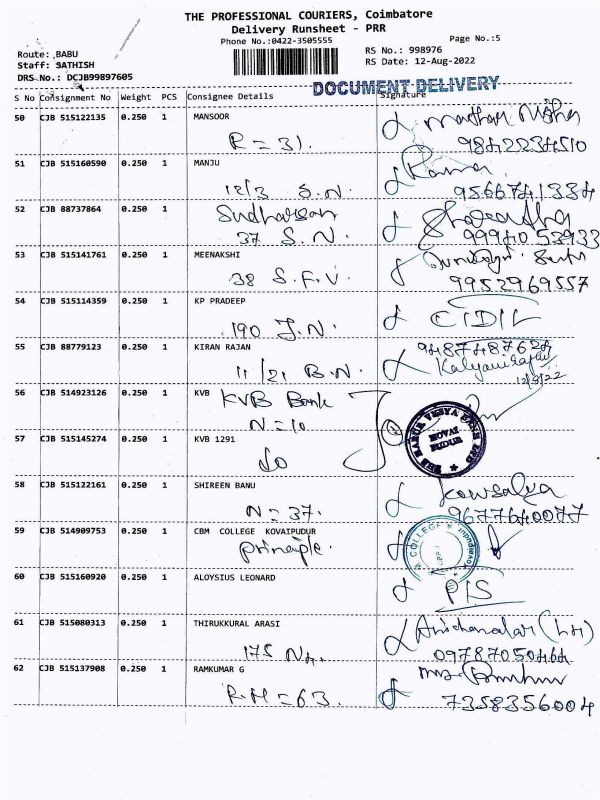 THE PROFESSIONAL COURIERS, Coimbatore
Delivery Runsheet - PRR
Phone No.:0422-3505555
Page No.:5
Route: BABU
Staff: SATHISH
DRS No.: DCJB99897605
RS No.: 998976
RS Date: 12-Aug-2022
DOCUMENT DELIVERY
S No Consignment No Weight PCS Consignee Details Signature
50 CJB 515122135 0.250 1 MANSOOR
R = 31.
9842234510
51 CJB 515160590 0.250 1 MANJU
Rama
12/3 S.N. 9566741334
52 CJB 88737864 0.250 1 Sudharsan
37 S.N. 9994053933
53 CJB 515141761 0.250 1 MEENAKSHI
38 S.F.V. 9952969557
54 CJB 515114359 0.250 1 KP PRADEEP
190 J.N. CIDIL
55 CJB 88779123 0.250 1 KIRAN RAJAN
9487487624
11/21 B.N. Kalyanirajan
12/8/22
56 CJB 514923126 0.250 1 KVB KVB Bank
N=10
57 CJB 515145274 0.250 1 KVB 1291
do
THE KARUR VYSYA BANK LTD
KOVAI
PUDUR
58 CJB 515122161 0.250 1 SHIREEN BANU
Kowsalya
N=37. 9677640077
59 CJB 514909753 0.250 1 CBM COLLEGE KOVAIPUDUR
principle.
COLLEGE
60 CJB 515160920 0.250 1 ALOYSIUS LEONARD
P1S
61 CJB 515080313 0.250 1 THIRUKKURAL ARASI
175 09787050464
62 CJB 515137908 0.250 1 RAMKUMAR G
R.H=63. 7358356004